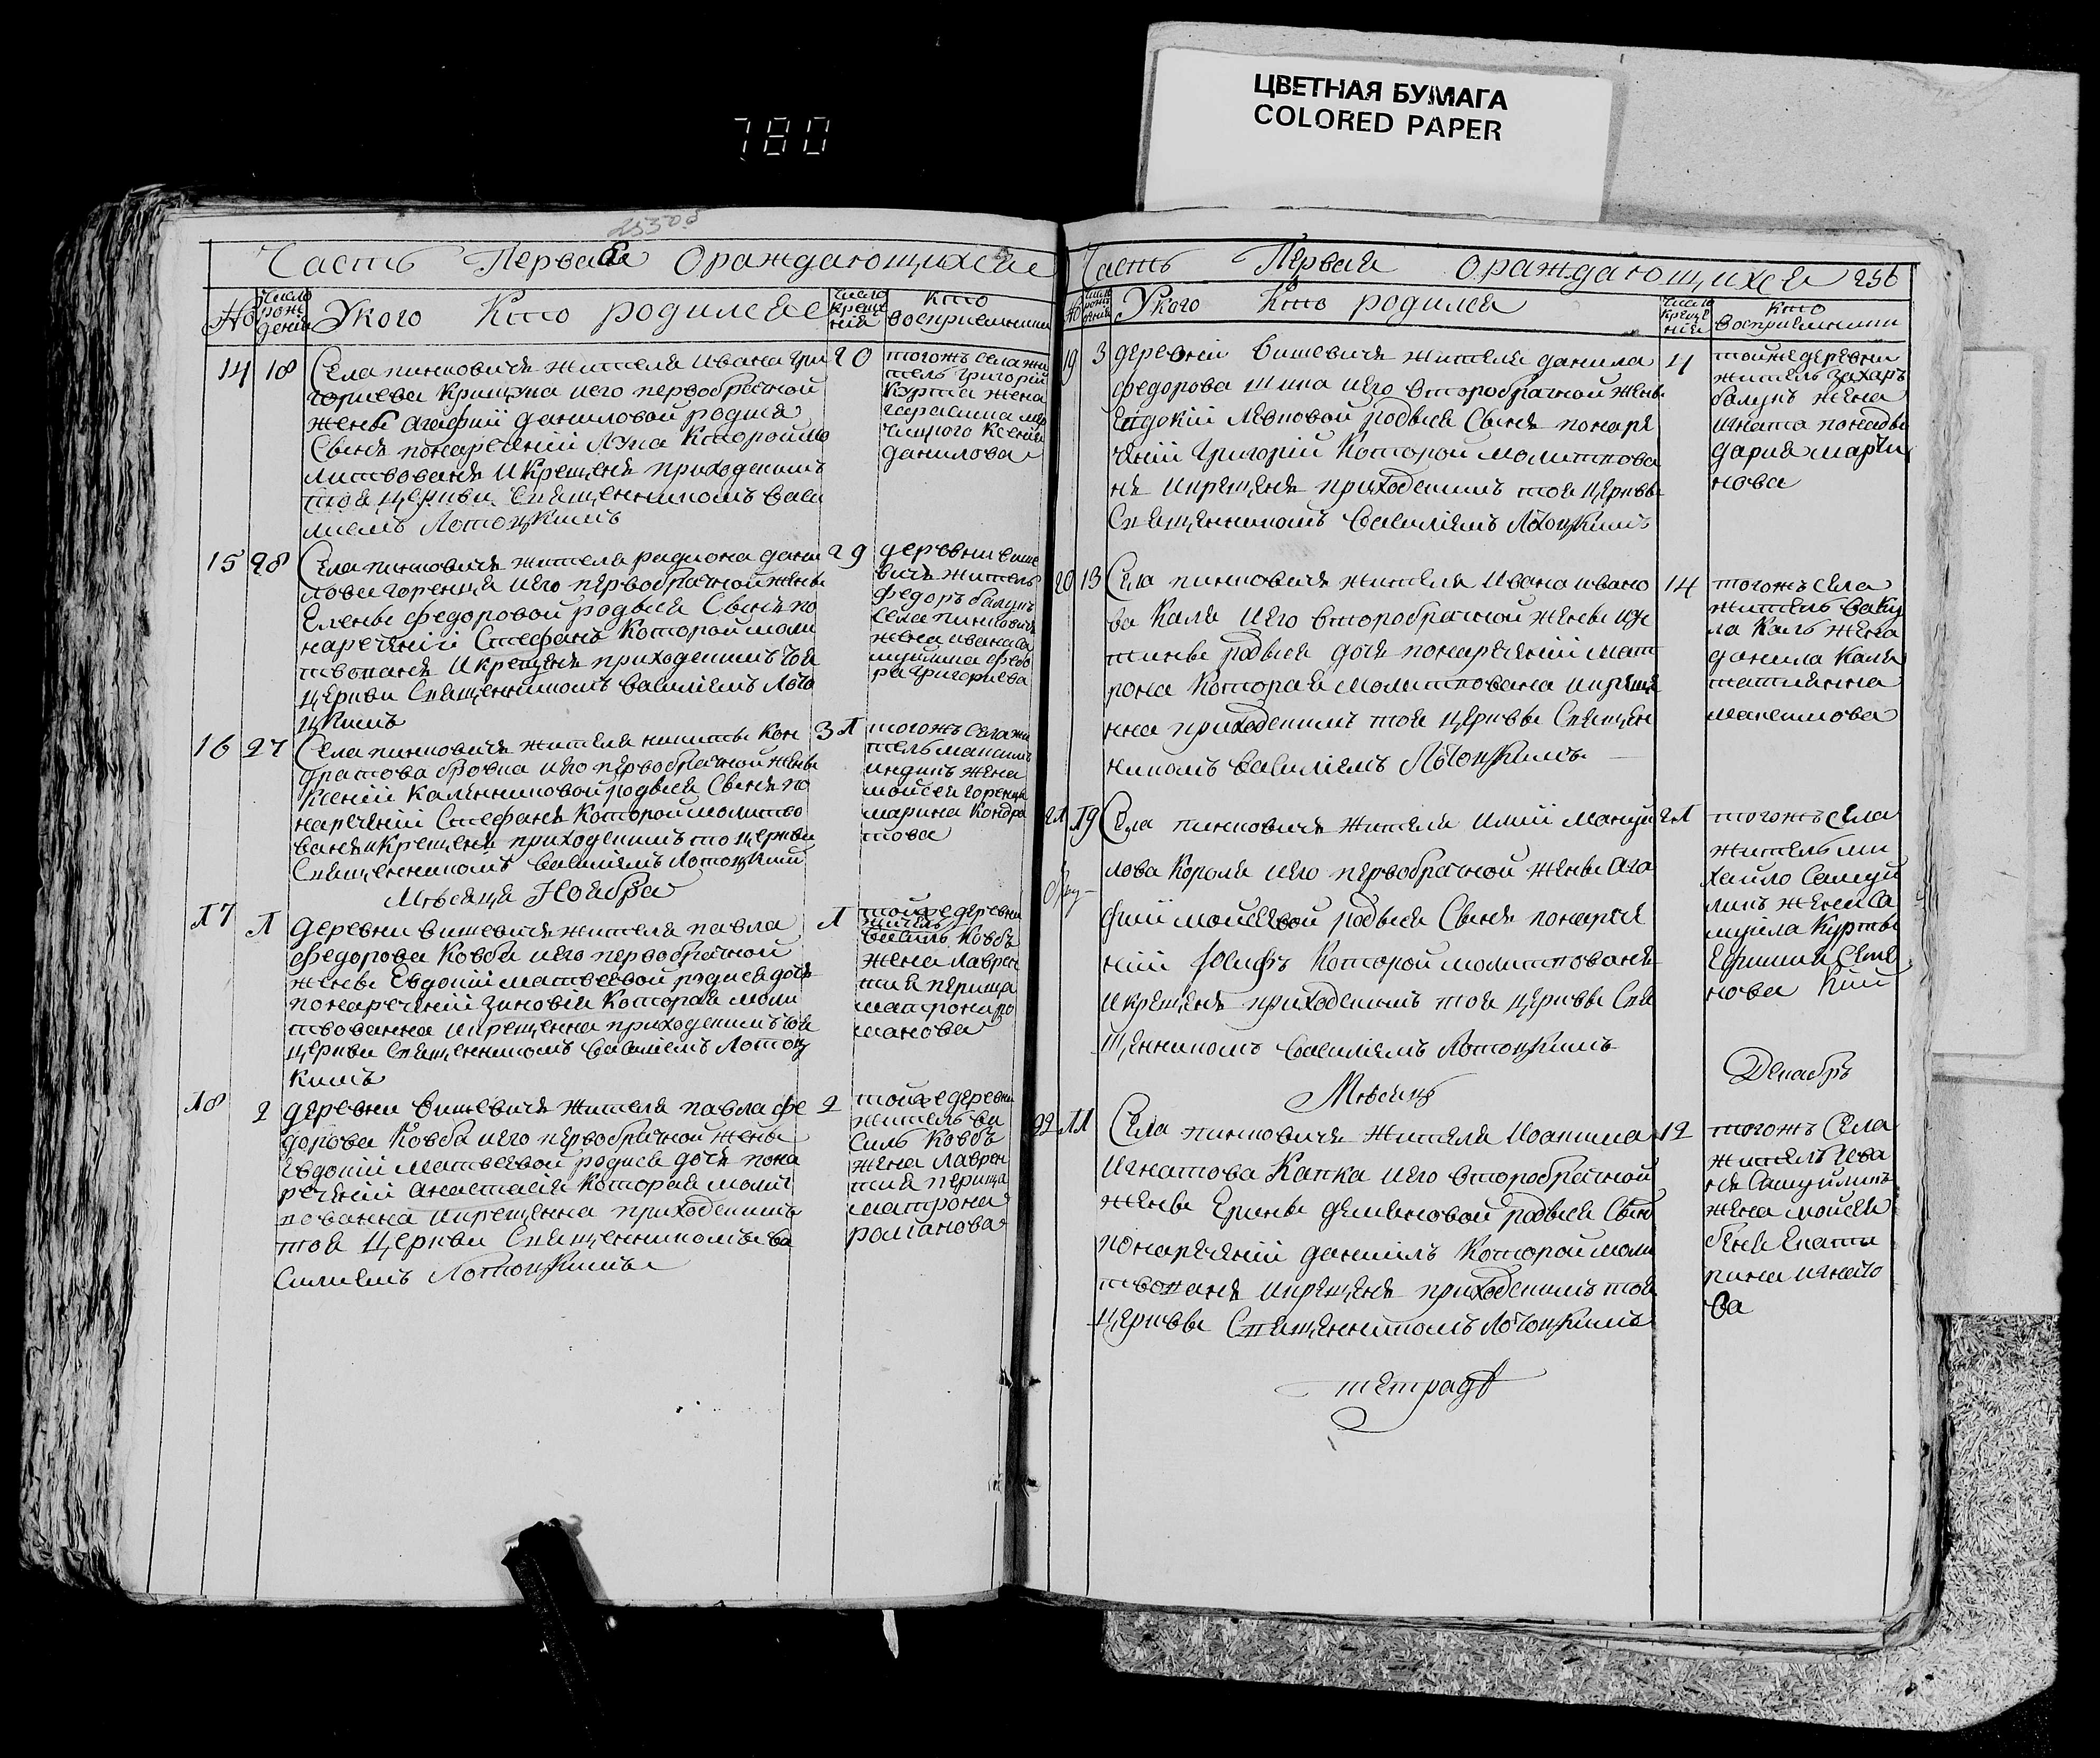 ЦВЕТНАЯ БУМАГА
COLORED PAPER
780
Часть Первая Ораждающихся
№
Число рождения
У кого Кто родился
Число крещения
Кто восприемники
14
18
Села пинковичъ жителя ивана гри
гориева Крищука иего первобрачной
жены агафии даниловой родися
Сынъ понаречении лука Которой мо
литвованъ и крещенъ приходскимъ
тоя церкви священникомъ васи
лиемъ Лотоцкимъ
20
тогожъ села жи
тель григорий
Курта жена
герасима
Ксения
данилова
15
28
Села пинковичъ жителя радиона дани
лова горенца иего первобрачной жены
Елены федоровой родься Сынъ по
наречении Стефанъ Которой моли
твованъ и крещенъ приходскимъ тоя
церкви Священникомъ василиемъ Лото
цкимъ
29
деревни више
вичъ житель
федоръ балукъ
села пинковичъ
жена ивана са
федо
ра григориева
16
27
Села пинковичъ жителя никиты Кон
дратова бровка иего первобрачной жены
Ксении Калениковой родься Сынъ по
наречении Стефанъ Которой молитво
ванъ и крещенъ приходскимъ то церкви
Священникомъ василиемъ Лотоцким
31
тогожъ села жи
тель максимъ
индикъ жена
моисея горенца
марина Кондра
това
Мъсяца Ноября
17
1
деревни вишевичъ жителя павла
федорова Ковба иего первобрачной
жены Евдокии матвеевой родися дочь
понаречении зиновия Которая моли
твованна и крещенна приходскимъ тоя
церкви священникомъ василиемъ Лотоц
кимъ
1
тойже деревни
житель
василь Ковбъ
жена лаврен
тия перища
матрона ро
манова
18
2
деревни вишевичъ жителя павла фе
дорова Ковба иего первобрачной жены
Евдокии матвеевой родися дочь пона
речении анастасия Которая молит
вованна и крещенна приходскимъ
тоя церкви Священникомъ ва
силиемъ Лотоцкимъ
2
тойже деревни
житель ва
силь Ковбъ
жена лаврен
тия перища
матрона
романова
Часть Первая Ораждающихся 256
№
Число рождения
У кого Кто родился
Число крещения
Кто восприемники
19
3
деревни вишевичъ жителя данила
федорова шика иего второбрачной жены
Евдокии леоновой родься Сынъ понаре
чении григорий Которой молитвова
нъ и крещенъ приходскимъ тоя церквы
Священникомъ василиемъ Лотоцкимъ
4
тойже деревни
житель захаръ
балукъ жена
игната
дария марти
нова
20
13
Села пинковичъ жителя ивана ивано
ва Каля иего второбрачной жены
родься дочь понаречении мат
рона Которая молитвована и креще
нна приходскимъ тоя церквы Священ
никомъ василиемъ Лотоцкимъ
14
тогожъ села
житель ваку
ла Каль жена
данила Каля
татиянна
максимова
21
19
Села пинковичъ жителя илии мануи
лова Короля иего первобрачной жены ага
фии моисеевой родься Сынъ понарече
нии иосифъ Которой молитвованъ
и крещенъ приходскимъ тоя церквы Свя
щенникомъ василиемъ Лотоцкимъ
21
тогожъ села
житель ми
хайло Самуй
ликъ жена са
муила Курты
Ефимия Семе
нова
Мъсяцъ Декабръ
22
11
Села пинковичъ жителя иоакима
игнатова Капка иего второбрачной
жены Ерины демяновой родься Сынъ
понаречении даниилъ Которой моли
твованъ и крещенъ приходскимъ тоя
церквы Священникомъ Лотоцкимъ
12
тогожъ Села
житель
Самуйликъ
жена моисея
Екате
рина игнато
ва
тетрадь